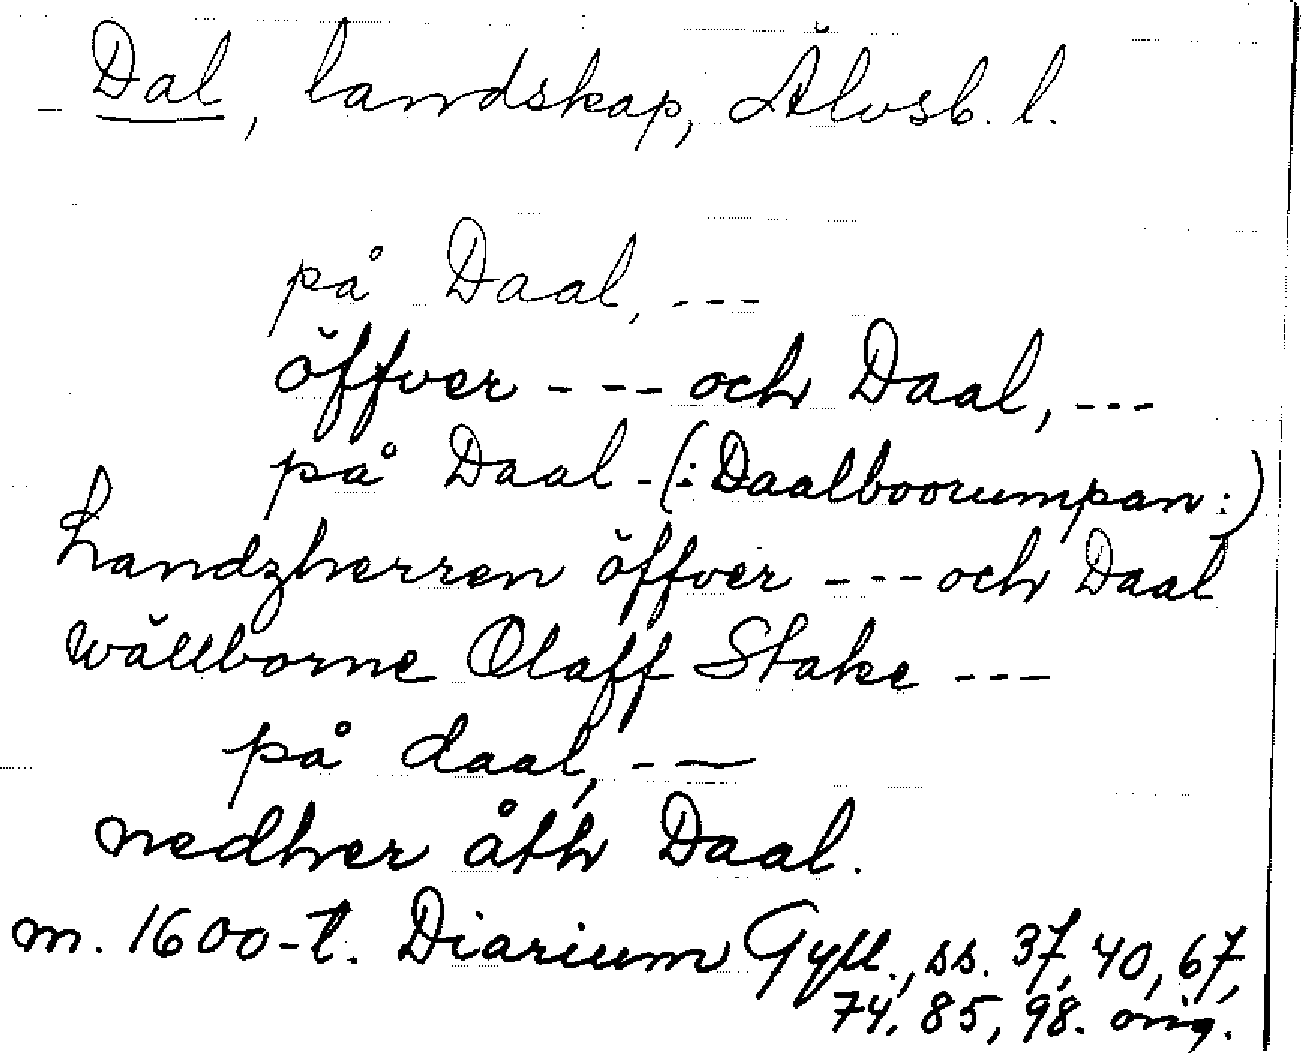 Dal, landskap, Älvsb. l.
på Daal, ---
öffver --- och Daal, ---
på Daal - (: Daalboorumpan :)
Landzherren öffver --- och Daal
Wällborne Olaff Stake ---
på daal, ---
nedher åth Daal.
m. 1600-t. Diarium Gyll., ss. 37, 40, 67,
74, 85, 98. orig.